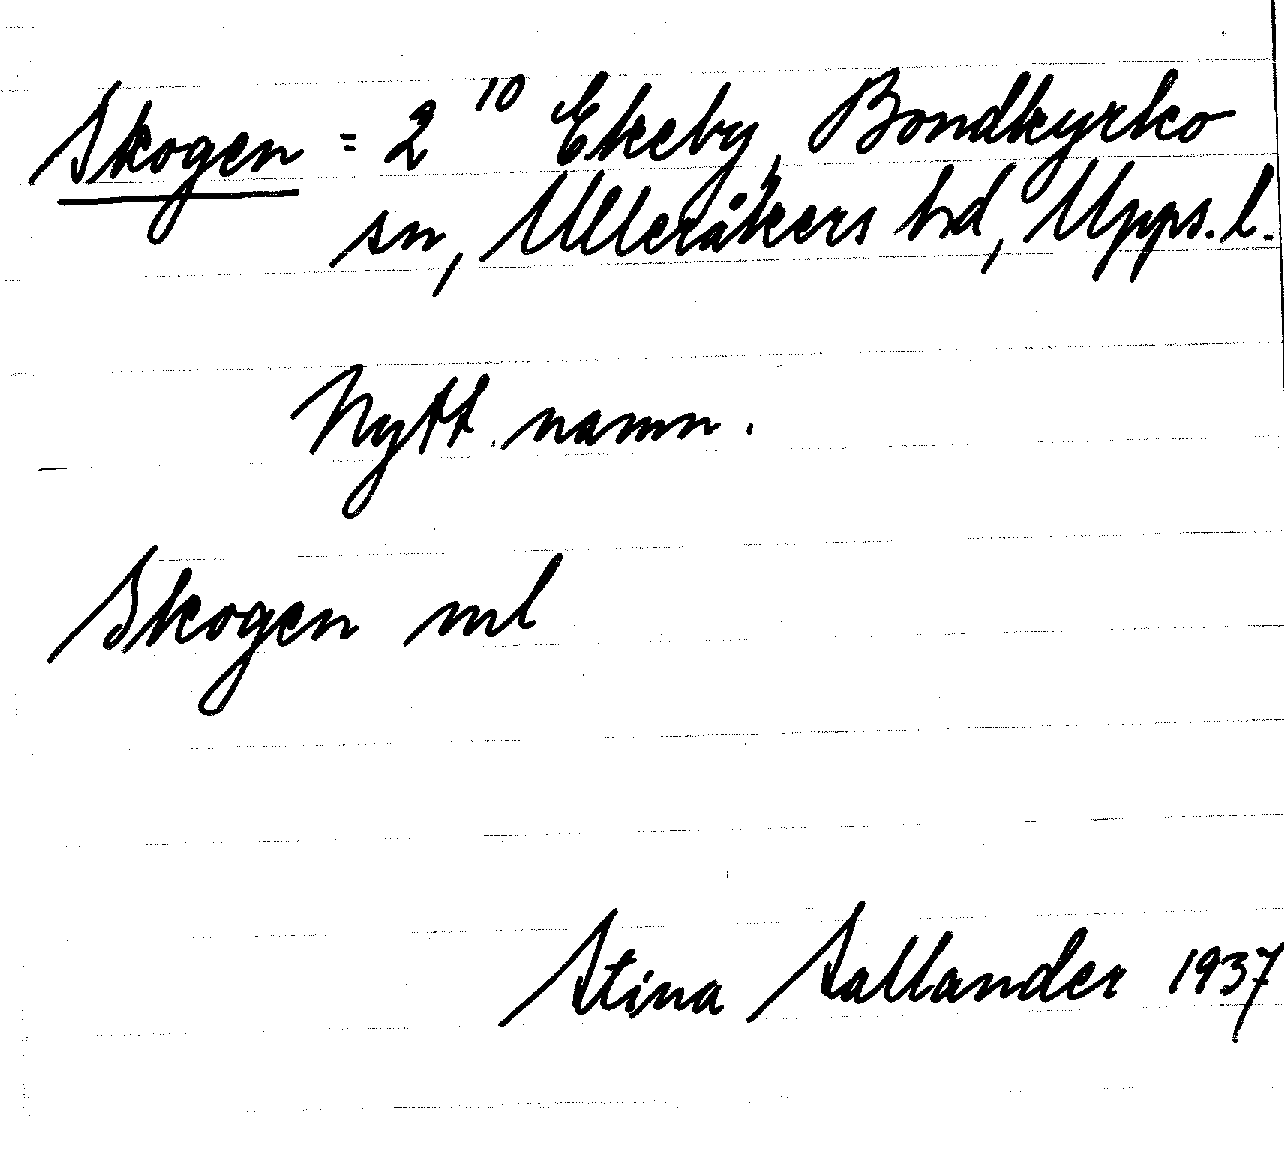 Skogen = 2¹⁰ Ekeby, Bondkyrko
sn, Ulleråkers hd, Upps. l.
Nytt namn.
Skogen ml
Stina Sallander 1937